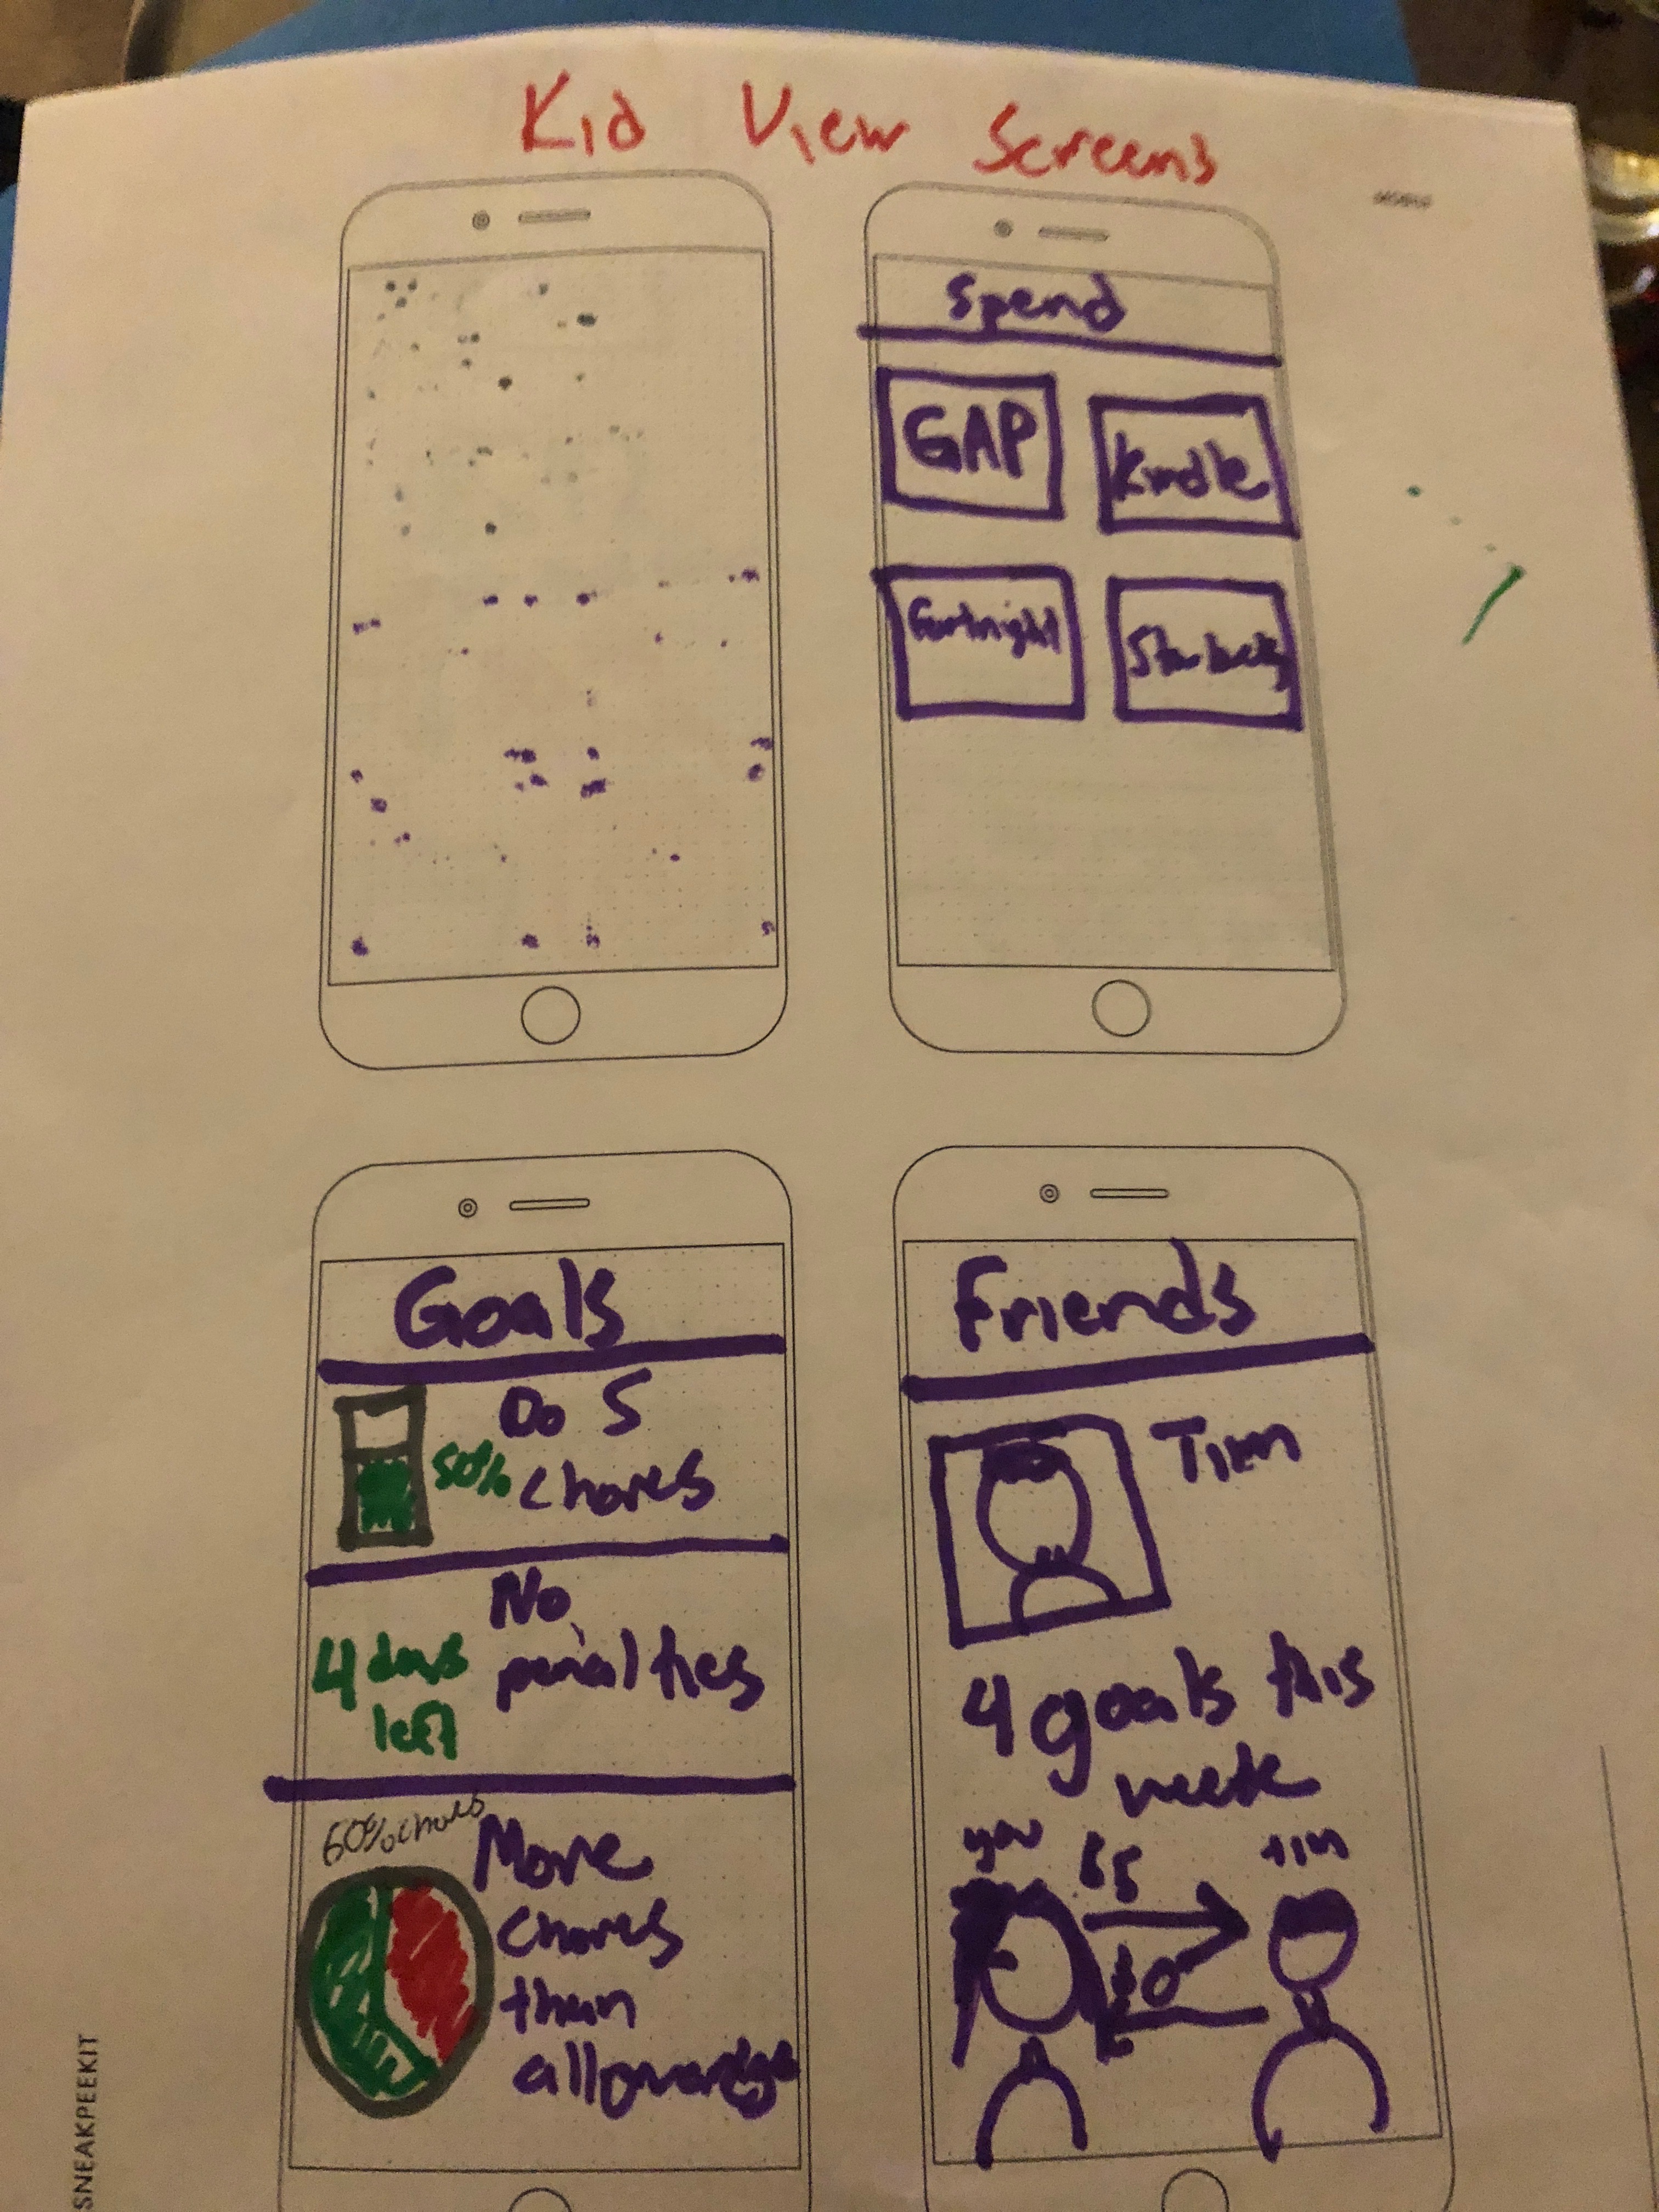 Kid View Screens
Spend
GAP
Kindle
Fortnight
Starbucks
Goals
Do 5
50% chores
No
4 days penalties
left
60% chores
More
chores
than
Friends
Tim
4 goals this
week
you $5 tim
$0
SNEAKPEEKIT